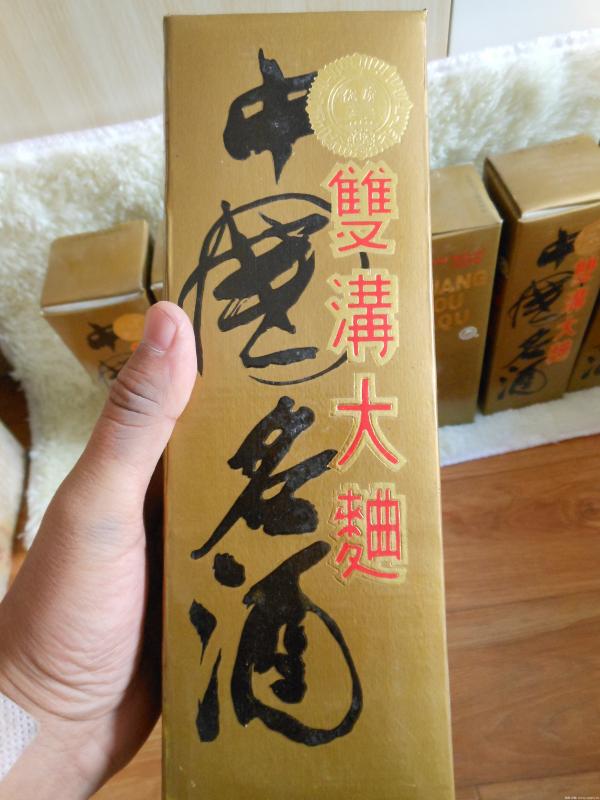 中國名酒
雙溝大麯
ANG
OU
QU
中國名酒
雙溝大麯
中國名酒